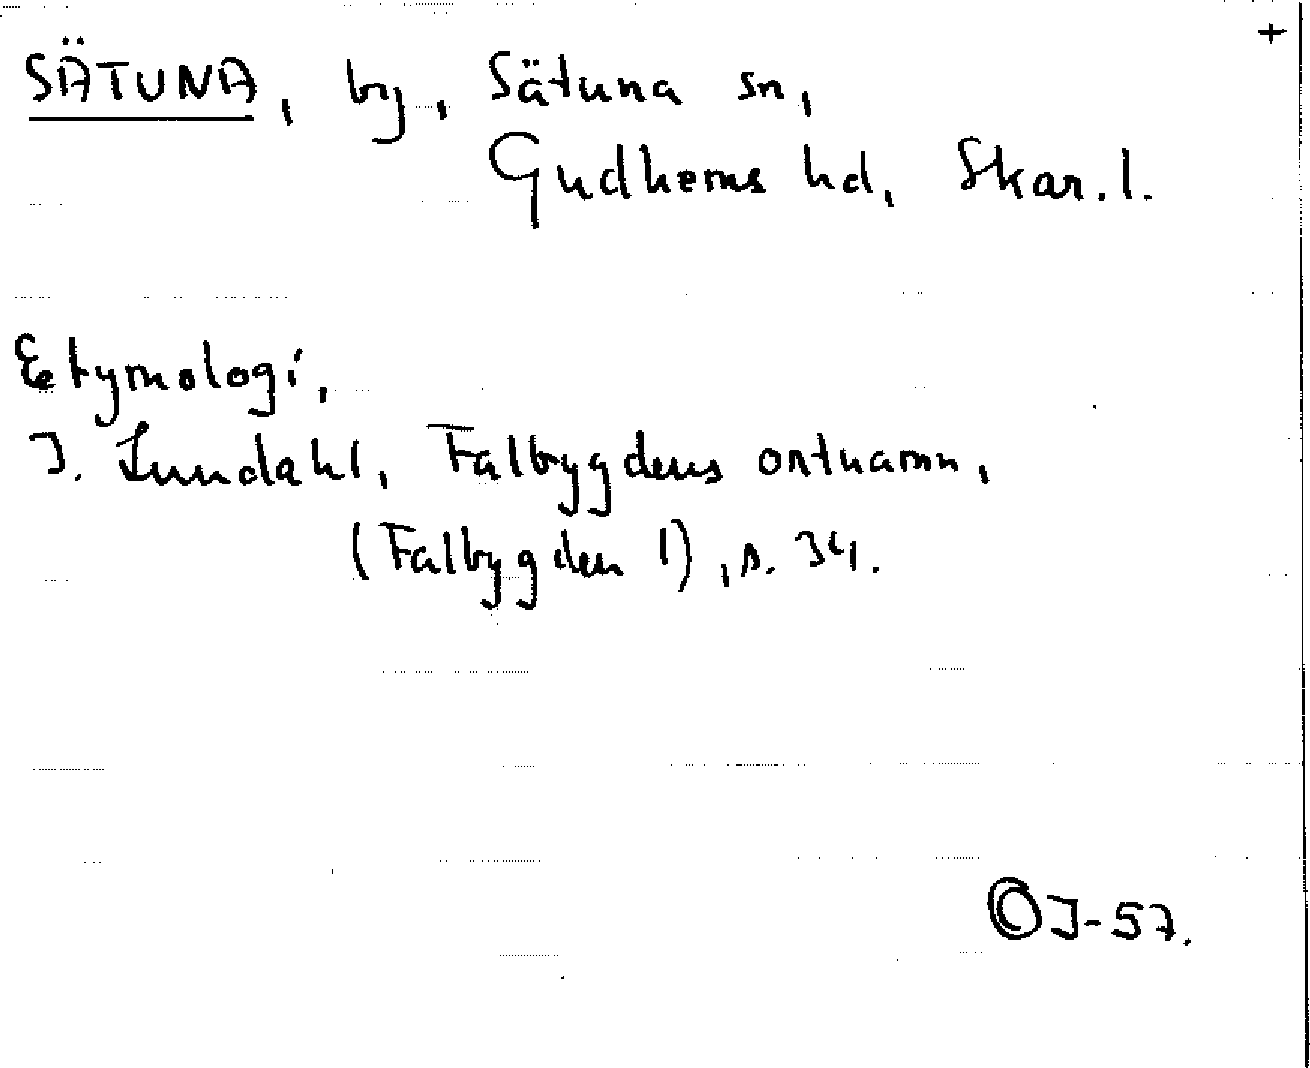 +
SÄTUNA, by, Sätuna sn,
Gudhems hd, Skar. l.
Etymologi,
J. Lundahl, Falbygdens ortnamn,
(Falbygden 1), s. 34.
J-57.